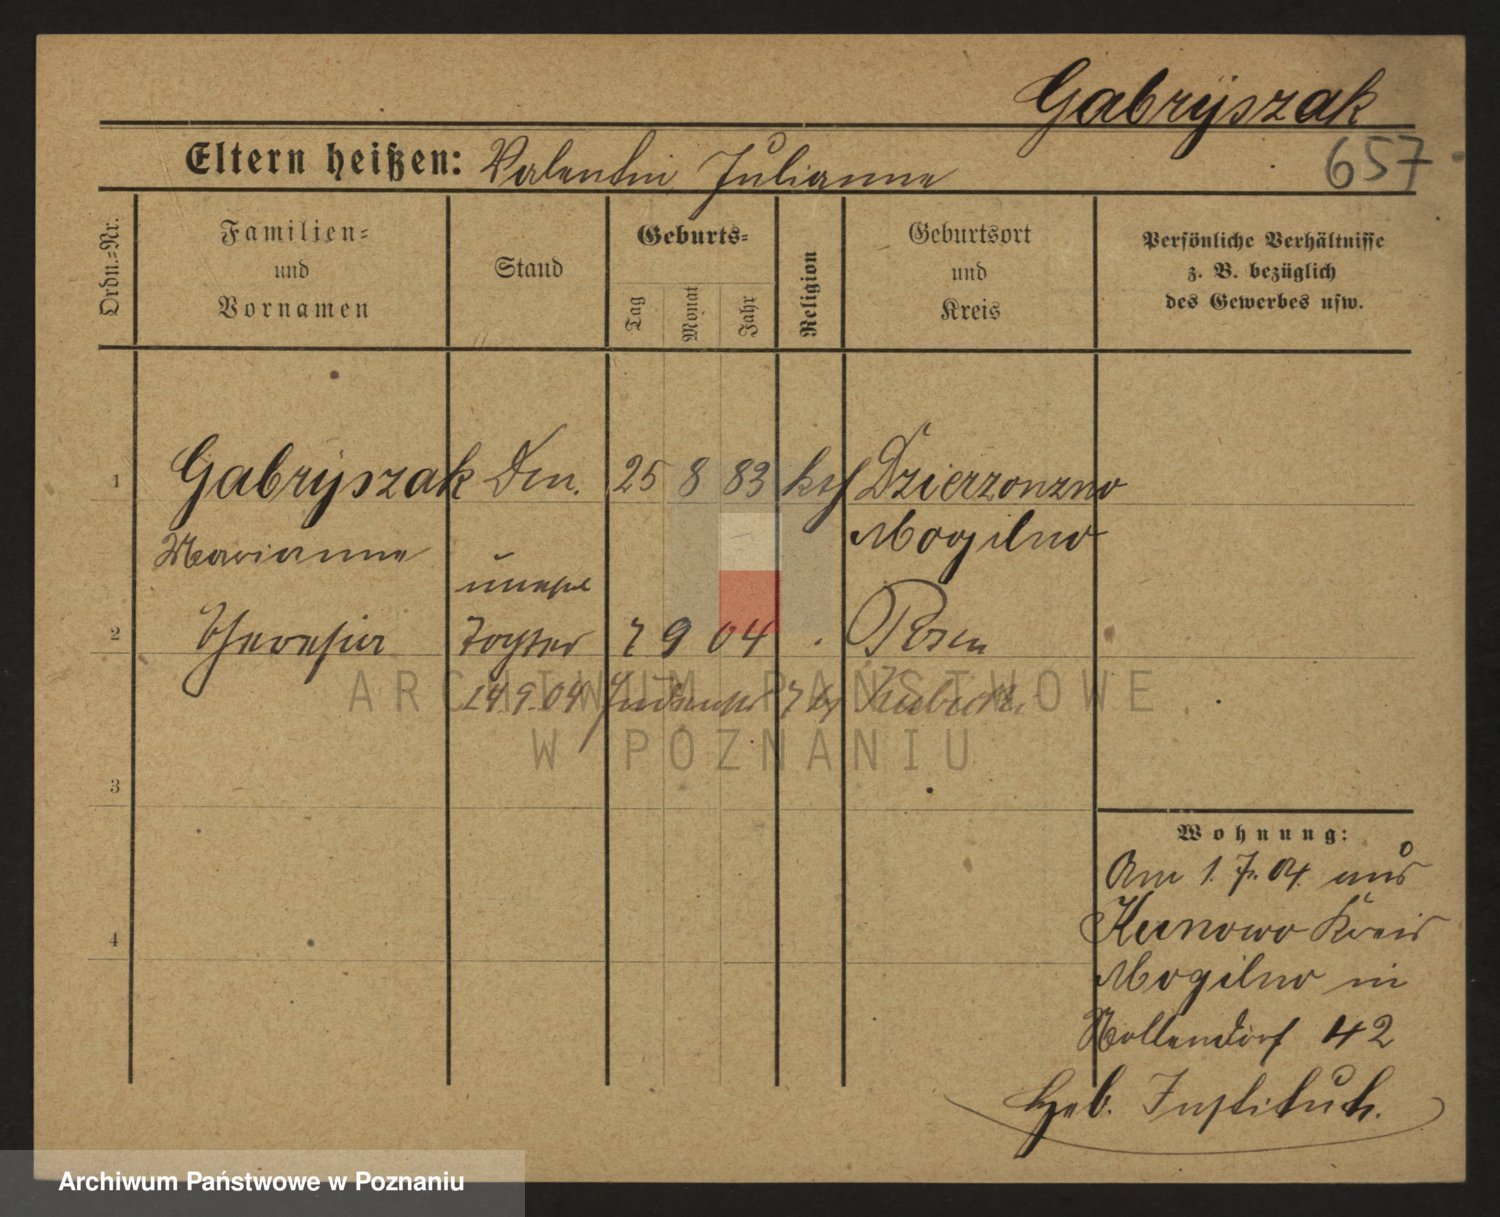 Gabryszak
657
Eltern heißen: Valentin Julianne
Ordn.=Nr.
Familien=
und
Vornamen
Stand
Geburts=
Tag
Monat
Jahr
Religion
Geburtsort
und
Kreis
Persönliche Verhältnisse
z. B. bezüglich
des Gewerbes usw.
1 Gabryszak 25 8 83 kth Dzierzonzno
Marianne Mogilno
unehel
2 Theresia Tochter 7 9 04 Posen
14 9. 04
ARCHIWUM PAŃSTWOWE
W POZNANIU
3
4
Wohnung:
Am 1. 7. 04. aus
Kunowo Kreis
Mogilno in
Nollendorf 42
Heb. Institut.
Archiwum Państwowe w Poznaniu